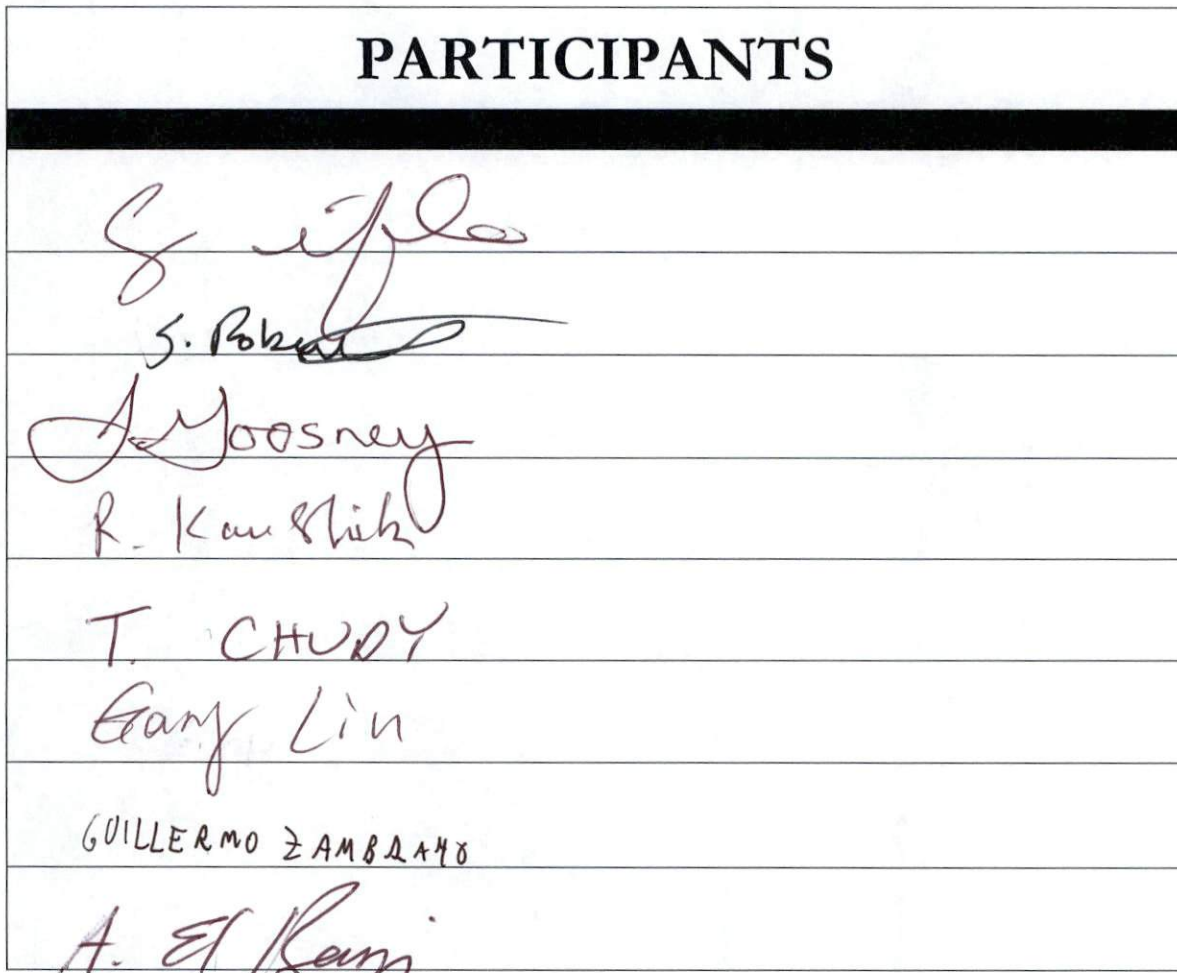 PARTICIPANTS
S. 
J. Goosney
R. Kaushik
T. CHUDY
Gary Lin
GUILLERMO ZAMBRANO
A. El